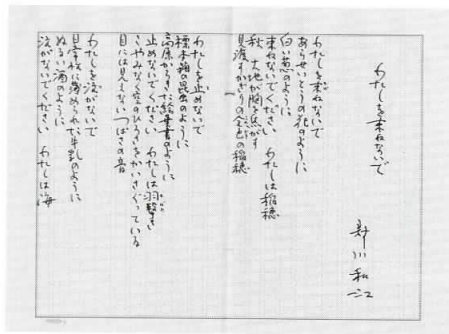 わたしを束ねないで
新川和江
わたしを束ねないで
あらせいとうの花のように
白い葱のように
束ねないでください わたしは稲穂
秋 大地が胸を焦がす
見渡すかぎりの金色の稲穂
わたしを止めないで
標本箱の昆虫のように
高原からきた絵葉書のように
止めないでください わたしは羽撃き
こやみなく空のひろさをかいさぐっている
目には見えないつばさの音
わたしを注がないで
日常性に薄められた牛乳のように
ぬるい酒のように
注がないでください わたしは海